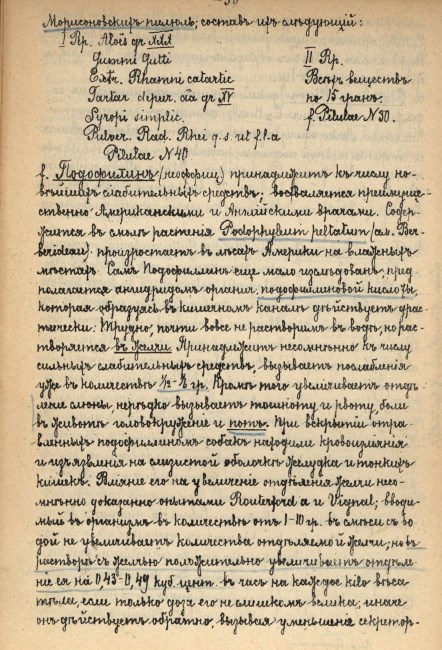 Морисоновскихъ пилюль; составъ ихъ слѣдующій:
I Rp. Aloës gr XXX
Gummi Gutti
Extr. Rhamni catartic
Tartar depur. āā gr XV
Syropi simplic.
Pulver. Rad. Rhei q.s. ut f.l.a
Pilulae N 40
II Rp.
Всѣхъ веществъ
по 15 гранъ.
f. Pilulae N 30.
f. Подофилинъ (неофиц) принадлежитъ къ числу но-
вѣйшихъ слабительныхъ средствъ, восхваляется преимуще-
ственно Американскими и Англійскими врачами. Содер-
жится въ смолѣ растенія Podophyllum peltatum (см. Ber-
berideau). произростаетъ въ лѣсахъ Америки на влажныхъ
мѣстахъ. Самъ Подофилинъ еще мало изслѣдованъ, пред
полагается ангидридомъ органич. подофиллиновой кислоты,
которая образуясь въ кишечномъ каналѣ дѣйствуетъ драс-
тически: Трудно, почти вовсе не растворимъ въ водѣ, но рас-
творяется въ желчи Принадлежитъ несомнѣнно къ числу
сильныхъ слабительныхъ средствъ, вызываетъ послабленія
уже въ количествѣ гр. Кромѣ того увеличиваетъ отдѣ-
леніе слюны, нерѣдко вызываетъ тошноту и рвоту, боли
въ животѣ головокруженіе и потъ. При вскрытіи отра-
вленныхъ подофиллиномъ собакъ находили кровоизліянія
и изъязвленія на слизистой оболочкѣ желудка и тонкихъ
кишекъ. Вліяніе его на увеличеніе отдѣленія желчи несо-
мнѣнно доказанно опытами Routerford'a и Vignal; вводи-
мый въ организмъ въ количествѣ отъ 1-10 гр. въ смѣси съ во
дой не увеличиваетъ количества отдѣляемой желчи, но въ
растворѣ съ желчью положительно увеличиваетъ отдѣле
ніе ея на 0,43-0,49 куб. цент. въ часъ на каждое kilo вѣса
тѣла, если только доза его не слишкомъ велика, иначе
онъ дѣйствуетъ обратно, вызывая уменьшеніе секретор-